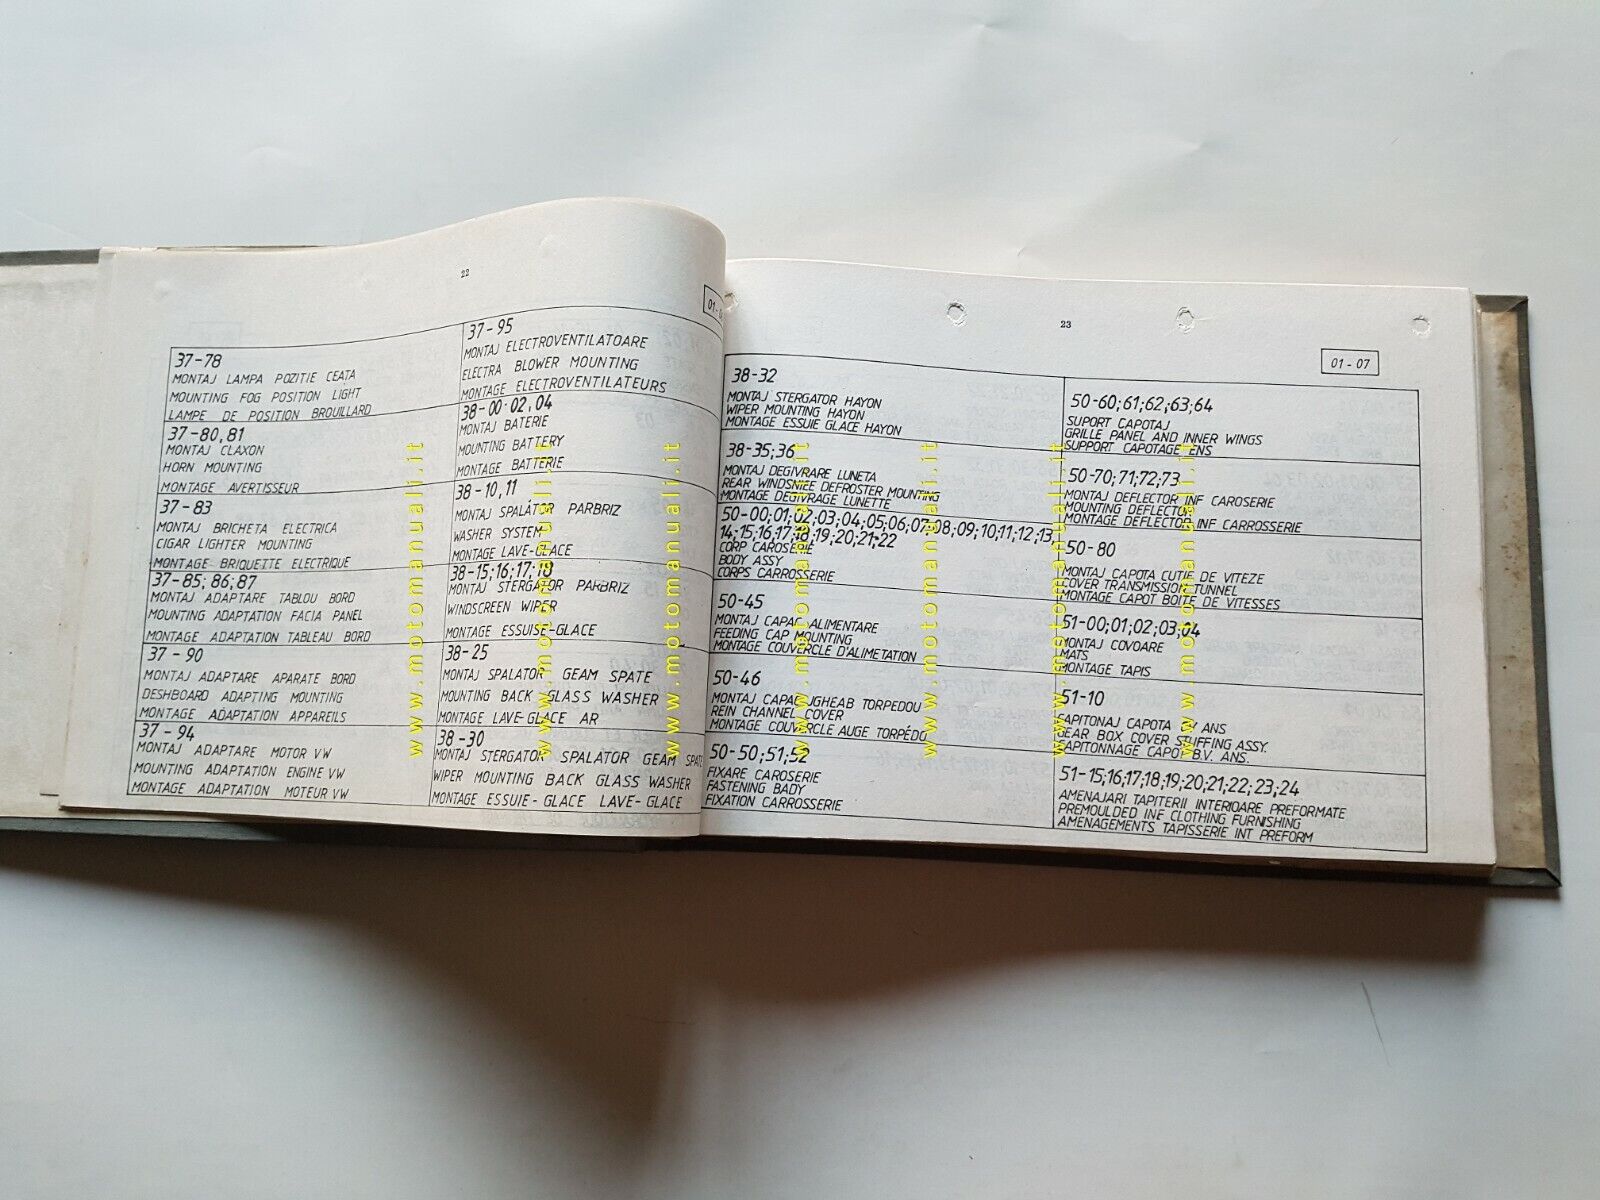 22
01-0
37-78
MONTAJ LAMPA POZITIE CEATA
MOUNTING FOG POSITION LIGHT
LAMPE DE POSITION BROUILLARD
37-80,81
MONTAJ CLAXON
HORN MOUNTING
MONTAGE AVERTISSEUR
37-83
MONTAJ BRICHETA ELECTRICA
CIGAR LIGHTER MOUNTING
MONTAGE BRIQUETTE ELECTRIQUE
37-85; 86; 87
MONTAJ ADAPTARE TABLOU BORD
MOUNTING ADAPTATION FACIA PANEL
MONTAGE ADAPTATION TABLEAU BORD
37-90
MONTAJ ADAPTARE APARATE BORD
DESHBOARD ADAPTING MOUNTING
MONTAGE ADAPTATION APPAREILS
37-94
MONTAJ ADAPTARE MOTOR VW
MOUNTING ADAPTATION ENGINE VW
MONTAGE ADAPTATION MOTEUR VW
37-95
MONTAJ ELECTROVENTILATOARE
ELECTRA BLOWER MOUNTING
MONTAGE ELECTROVENTILATEURS
38-00-02,04
MONTAJ BATERIE
MOUNTING BATTERY
MONTAGE BATTERIE
38-10,11
MONTAJ SPALĂTOR PARBRIZ
WASHER SYSTEM
MONTAGE LAVE-GLACE
38-15;16;17;18
MONTAJ STERGATOR PARBRIZ
WINDSCREEN WIPER
MONTAGE ESSUISE-GLACE
38-25
MONTAJ SPALATOR GEAM SPATE
MOUNTING BACK GLASS WASHER
MONTAGE LAVE-GLACE AR
38-30
MONTAJ STERGATOR SPALATOR GEAM SPATE
WIPER MOUNTING BACK GLASS WASHER
MONTAGE ESSUIE-GLACE LAVE-GLACE
23
01-07
38-32
MONTAJ STERGATOR HAYON
WIPER MOUNTING HAYON
MONTAGE ESSUIE GLACE HAYON
38-35;36
MONTAJ DEGIVRARE LUNETA
REAR WINDSNIEE DEFROSTER MOUNTING
MONTAGE DEGIVRAGE LUNETTE
50-00;01;02;03;04;05;06;07;08;09;10;11;12;13,
14;15;16;17;18;19;20;21-22
CORP CAROSERIE
BODY ASSY
CORPS CARROSSERIE
50-45
MONTAJ CAPAC ALIMENTARE
FEEDING CAP MOUNTING
MONTAGE COUVERCLE D'ALIMETATION
50-46
MONTAJ CAPAC JGHEAB TORPEDOU
REIN CHANNEL COVER
MONTAGE COUVERCLE AUGE TORPÉDO
50-50;51;52
FIXARE CAROSERIE
FASTENING BADY
FIXATION CARROSSERIE
50-60;61;62;63;64
SUPORT CAPOTAJ
GRILLE PANEL AND INNER WINGS
SUPPORT CAPOTAGE ENS
50-70;71;72;73
MONTAJ DEFLECTOR INF CAROSERIE
MOUNTING DEFLECTOR
MONTAGE DEFLECTOR INF CARROSSERIE
50-80
MONTAJ CAPOTA CUTIE DE VITEZE
COVER TRANSMISSION TUNNEL
MONTAGE CAPOT BOITE DE VITESSES
51-00;01;02;03;04
MONTAJ COVOARE
MATS
MONTAGE TAPIS
51-10
CAPITONAJ CAPOTA CV ANS
GEAR BOX COVER STUFFING ASSY.
CAPITONNAGE CAPOT B.V. ANS.
51-15;16;17;18;19;20;21;22;23;24
AMENAJARI TAPITERII INTERIOARE PREFORMATE
PREMOULDED INF CLOTHING FURNISHING
AMENAGEMENTS TAPISSERIE INT PREFORM
www.motomanuali.it
www.motomanuali.it
www.motomanuali.it
www.motomanuali.it
www.motomanuali.it
www.motomanuali.it
www.motomanuali.it